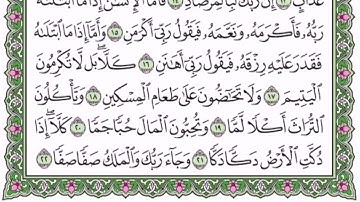 عَذَابٍ ١٣ إِنَّ رَبَّكَ لَبِالْمِرْصَادِ ١٤ فَأَمَّا الْإِنْسَنُ إِذَا مَا ابْتَلَهُ
رَبُّهُ فَأَكْرَمَهُ وَنَعَّمَهُ فَيَقُولُ رَبِّي أَكْرَمَنِ ١٥ وَأَمَّا إِذَا مَا ابْتَلَهُ
فَقَدَرَ عَلَيْهِ رِزْقَهُ فَيَقُولُ رَبِّي أَهَنَنِ ١٦ كَلَّا بَلْ لَا تُكْرِمُونَ
الْيَتِيمَ ١٧ وَلَا تَحَضُّونَ عَلَى طَعَامِ الْمِسْكِينِ ١٨ وَتَأْكُلُونَ
التُّرَاثَ أَكْلًا لَمًّا ١٩ وَتُحِبُّونَ الْمَالَ حُبًّا جَمًّا ٢٠ كَلَّا إِذَا
دُكَّتِ الْأَرْضُ دَكًّا دَكًّا ٢١ وَجَاءَ رَبُّكَ وَالْمَلَكُ صَفًّا صَفًّا ٢٢